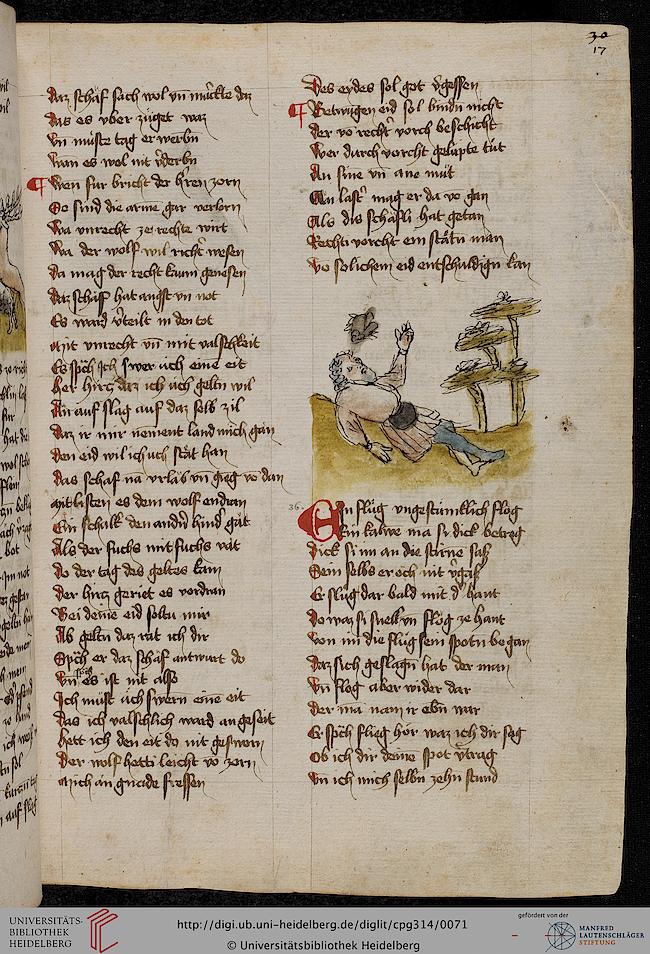 30
17
daz schäf sach wol vn̄ markte daz
das es vber züget waz
vn̄ müste tag er werbn̄
wan es wol nit v'derbn̄
Wen für bricht der h'ren zorn
So sind die arme gar verlorn
wa vnrecht ze rechte wirt
wa der wolf wil richt' wesen
da mag der recht kaum genesen
daz schäf hat angst vn not
Es ward v'teilt in den tot
mit vnrecht vn̄ mit valschkeit
Es sp̄ch Jch swer üch eine eit
her hirz daz ich üch geltn wil
An auf slag auf daz selb zil
daz ir mir nement land mich gan
den eid wil ich uch stät han
das schaf na vrlab vn̄ gieg vo dan
mit listen es dem wolf endran
Ein schalk den andn̄ hind' gät
Als der fuchs mit fuchs vät
do der tag des geltes kam
der hirz geriet es vordran
Bei deine eid soltu mir
Ab geltn daz rat ich dir
Sp̄ch er daz schäf antwurt do
vn̄ sp̄ch es ist nit also
Jch müst üch swern eine eit
das ich valschlich ward an geseit
hett ich den eit do nit gesworn
der wolf hetti leicht vo zorn
mich an gnade fressen
des eides sol got v'gessen
Betwūgen eid sol bindn nicht
der vo recht' vorch beschicht
wer durch vorcht gelüpte tüt
An sine vn̄ ane müt
An last' mag er da vo gan
Als dis schäfli hat getan
Rechti vorcht ein stätn man
vō solichem eid entschuldign kan
36.
Ein flüg vngestümklich flög
Ein kalwe ma si dick betrog
dick si im an die stirne saß
Sein selbs er och nit v'gaß
Er slüg dar bald mit d' hant
do waz si snell vn̄ flög ze hant
von im die flüg sein spotn be gan
daz sich geslagn hat der man
vn̄ flog aber wider dar
der ma nam ir ebn war
Er sp̄ch flieg hör waz ich dir sag
ob ich dir deine spot v'trag
vn ich mich selbn zehn stund
UNIVERSITÄTS-
BIBLIOTHEK
HEIDELBERG
http://digi.ub.uni-heidelberg.de/diglit/cpg314/0071
© Universitätsbibliothek Heidelberg
gefördert von der
MANFRED
LAUTENSCHLÄGER
STIFTUNG